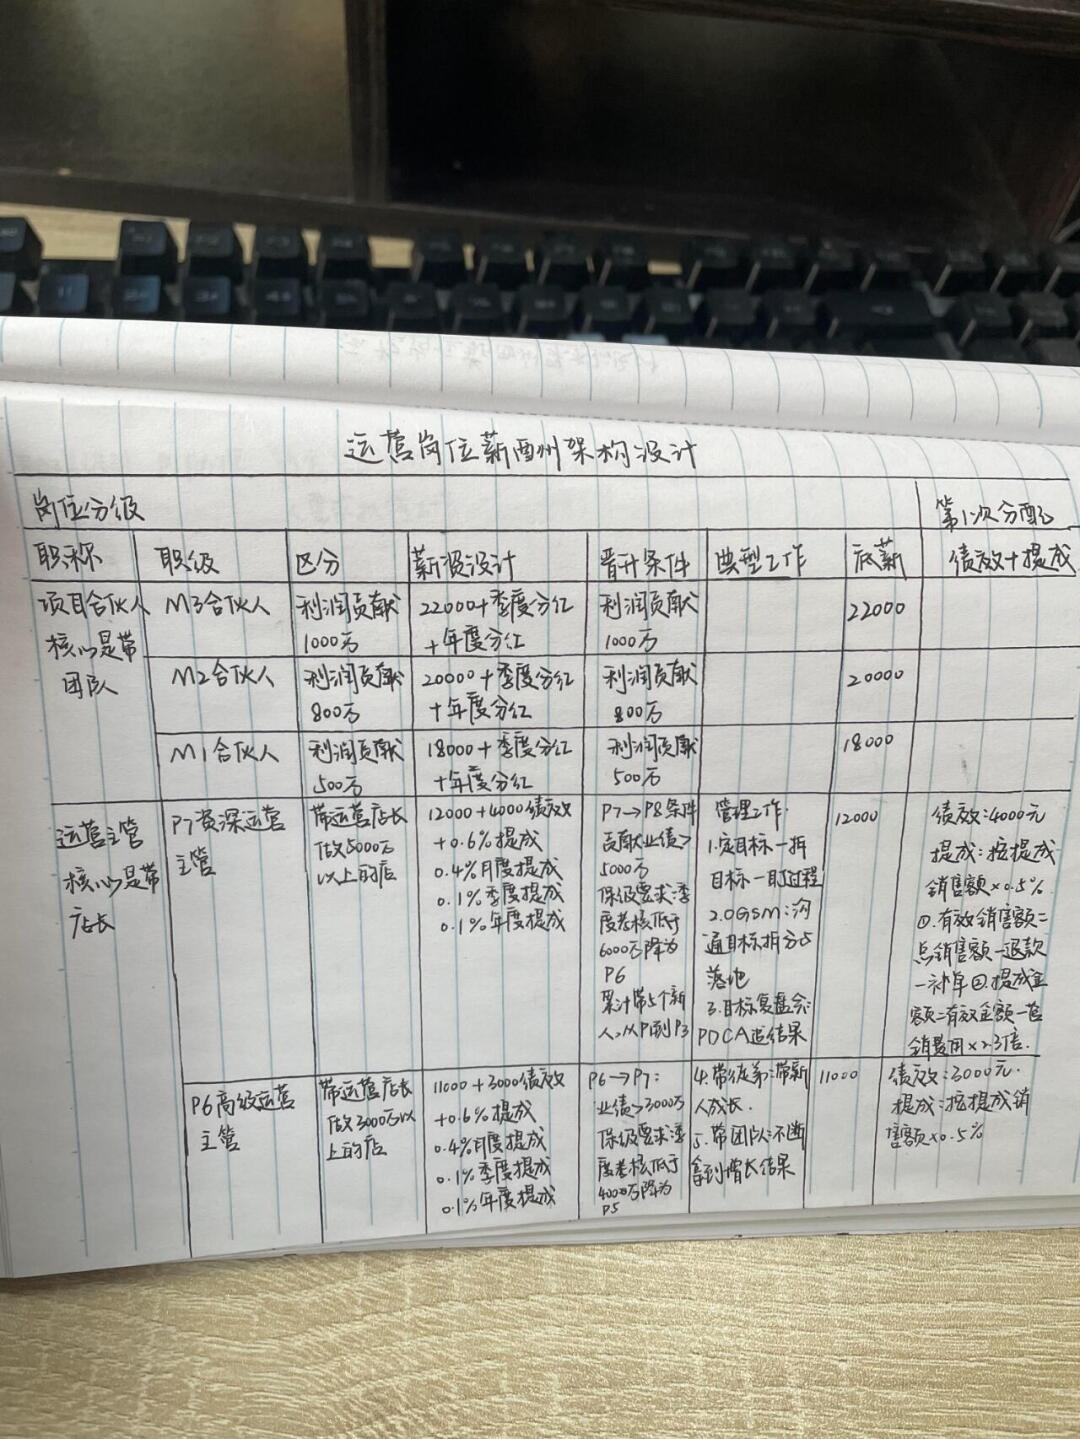 运营岗位薪酬架构设计
岗位分级
第1次分配
职称 职级 区分 薪资设计 晋升条件 典型工作 底薪 绩效+提成
项目合伙人
核心是带
团队
M3合伙人
利润贡献
1000万
22000+季度分红
+年度分红
利润贡献
1000万
22000
M2合伙人
利润贡献
800万
20000+季度分红
+年度分红
利润贡献
800万
20000
M1合伙人
利润贡献
500万
18000+季度分红
+年度分红
利润贡献
500万
18000
运营主管
核心是带
店长
P7资深运营
主管
带运营店长
做5000万
以上的店
12000+4000绩效
+0.6%提成
0.4%月度提成
0.1%季度提成
0.1%年度提成
P7→P8条件
贡献业绩>
5000万
保级要求:季
度考核低于
6000万降为
P6
累计带5个新
人,从P1到P3
管理工作:
1.定目标一拆
目标一盯过程
2.OGSM:沟
通目标拆分与
落地
3.目标复盘会:
PDCA追结果
12000
绩效:4000元
提成:按提成
销售额×0.5%
①.有效销售额=
总销售额一退款
一补单②.提成金
额=有效金额一营
销费用×2.3倍.
P6高级运营
主管
带运营店长
做3000万以
上的店
11000+3000绩效
+0.6%提成
0.4%月度提成
0.1%季度提成
0.1%年度提成
P6→P7:
业绩>3000万
保级要求:季
度考核低于
4000万降为
P5
4.带徒弟:带新
人成长.
5.带团队:不断
拿到增长结果
11000
绩效:3000元.
提成:按提成销
售额×0.5%